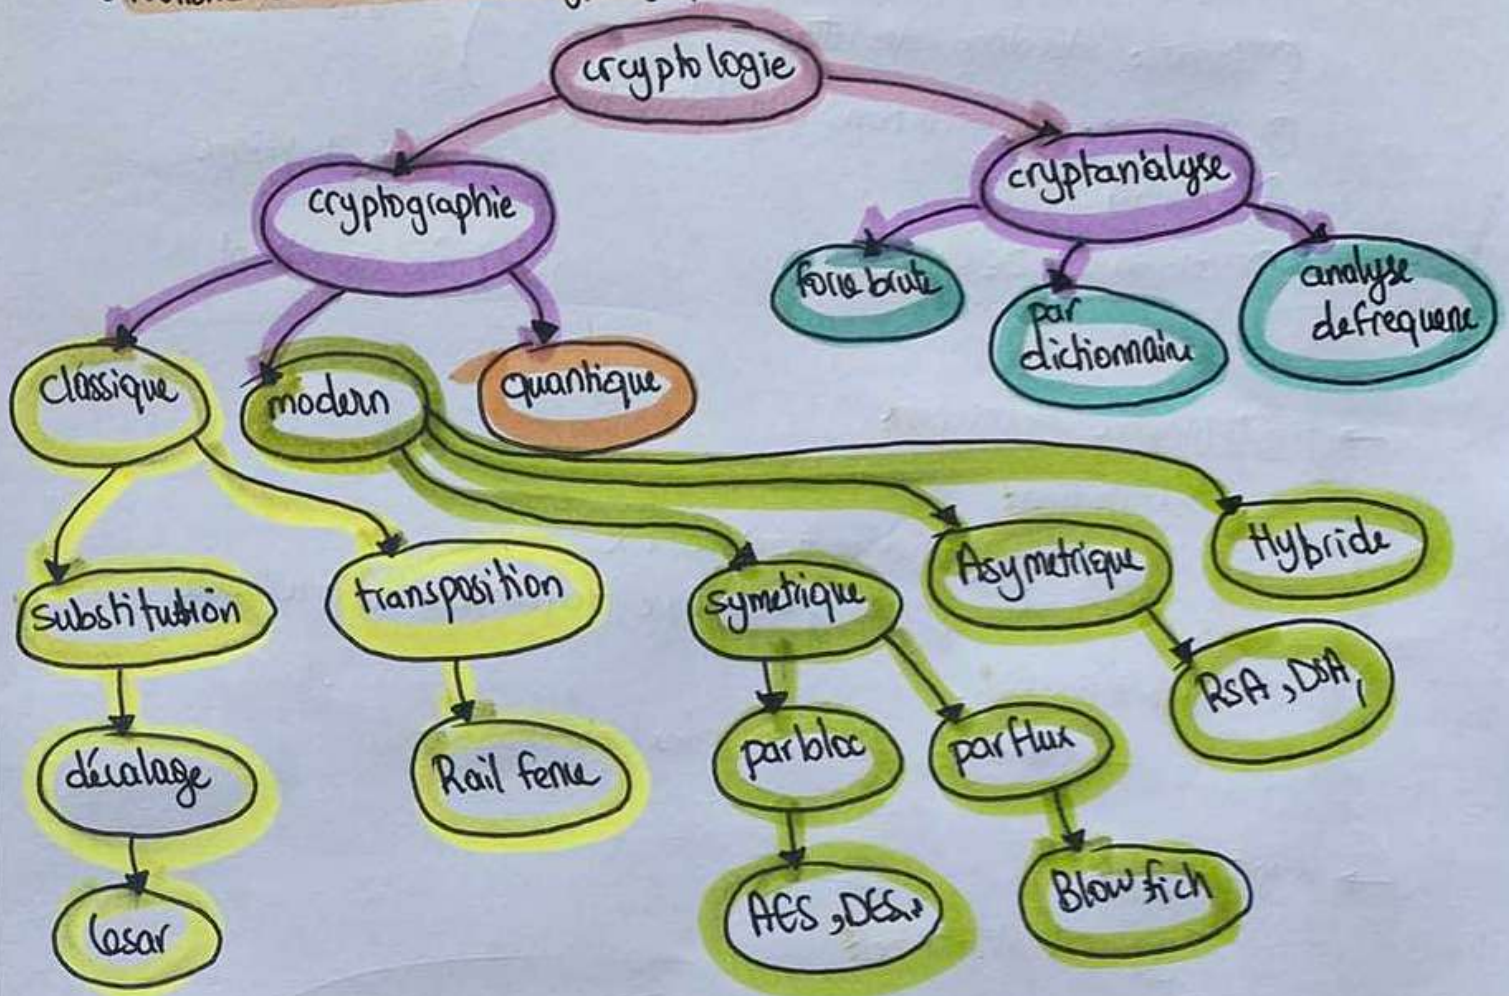 crcyptologie
cryptographie
cryptanalyse
force brute
par
dictionnaire
analyse
de frequenc
classique
modern
quantique
substitution
transposition
symetrique
Asymetrique
Hybride
décalage
Rail fence
par bloc
par flux
RSA, DSA,
Cesar
AES, DES,
Blow fich